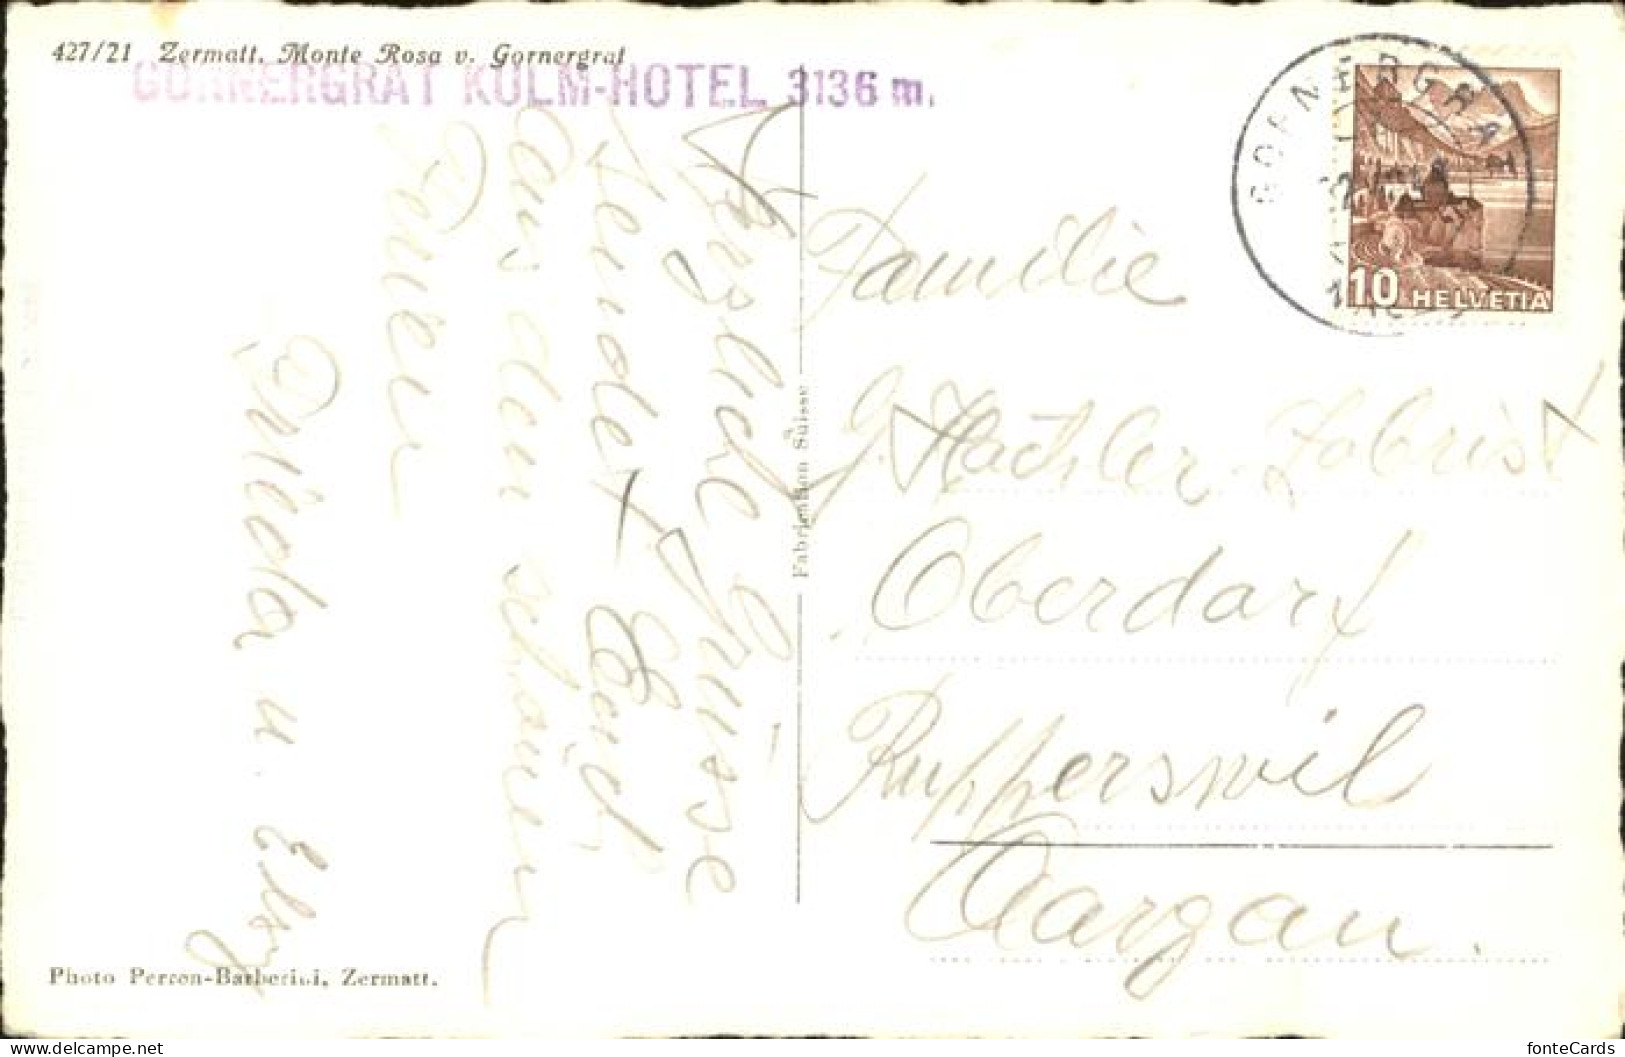 427/21 Zermatt. Monte Rosa v. Gornergrat
GORNERGRAT KULM-HOTEL 3136 m.
GORNERGRAT
10 HELVETIA
Herzliche Grüsse
sendet Euch
aus den schönen
Ferien
u. Elsy
Fabrication Suisse
Familie
G. Hächler-Zobrist
Oberdorf
Rupperswil
Aargau.
Photo Perren-Barberini, Zermatt.
https://www.delcampe.net
fonteCards